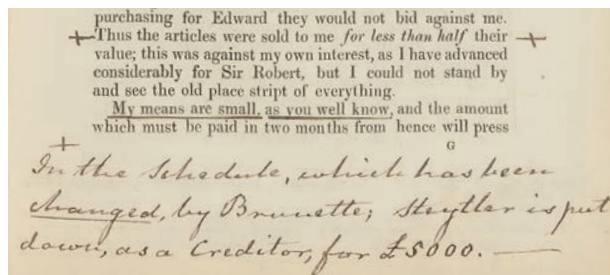 purchasing for Edward they would not bid against me.
Thus the articles were sold to me for less than half their
value; this was against my own interest, as I have advanced
considerably for Sir Robert, but I could not stand by
and see the old place stript of everything.
My means are small, as you well know, and the amount
which must be paid in two months from hence will press
G
In the Schedule, which has been
changed, by Brunette; Steytler is put
down, as a Creditor, for £5000. —